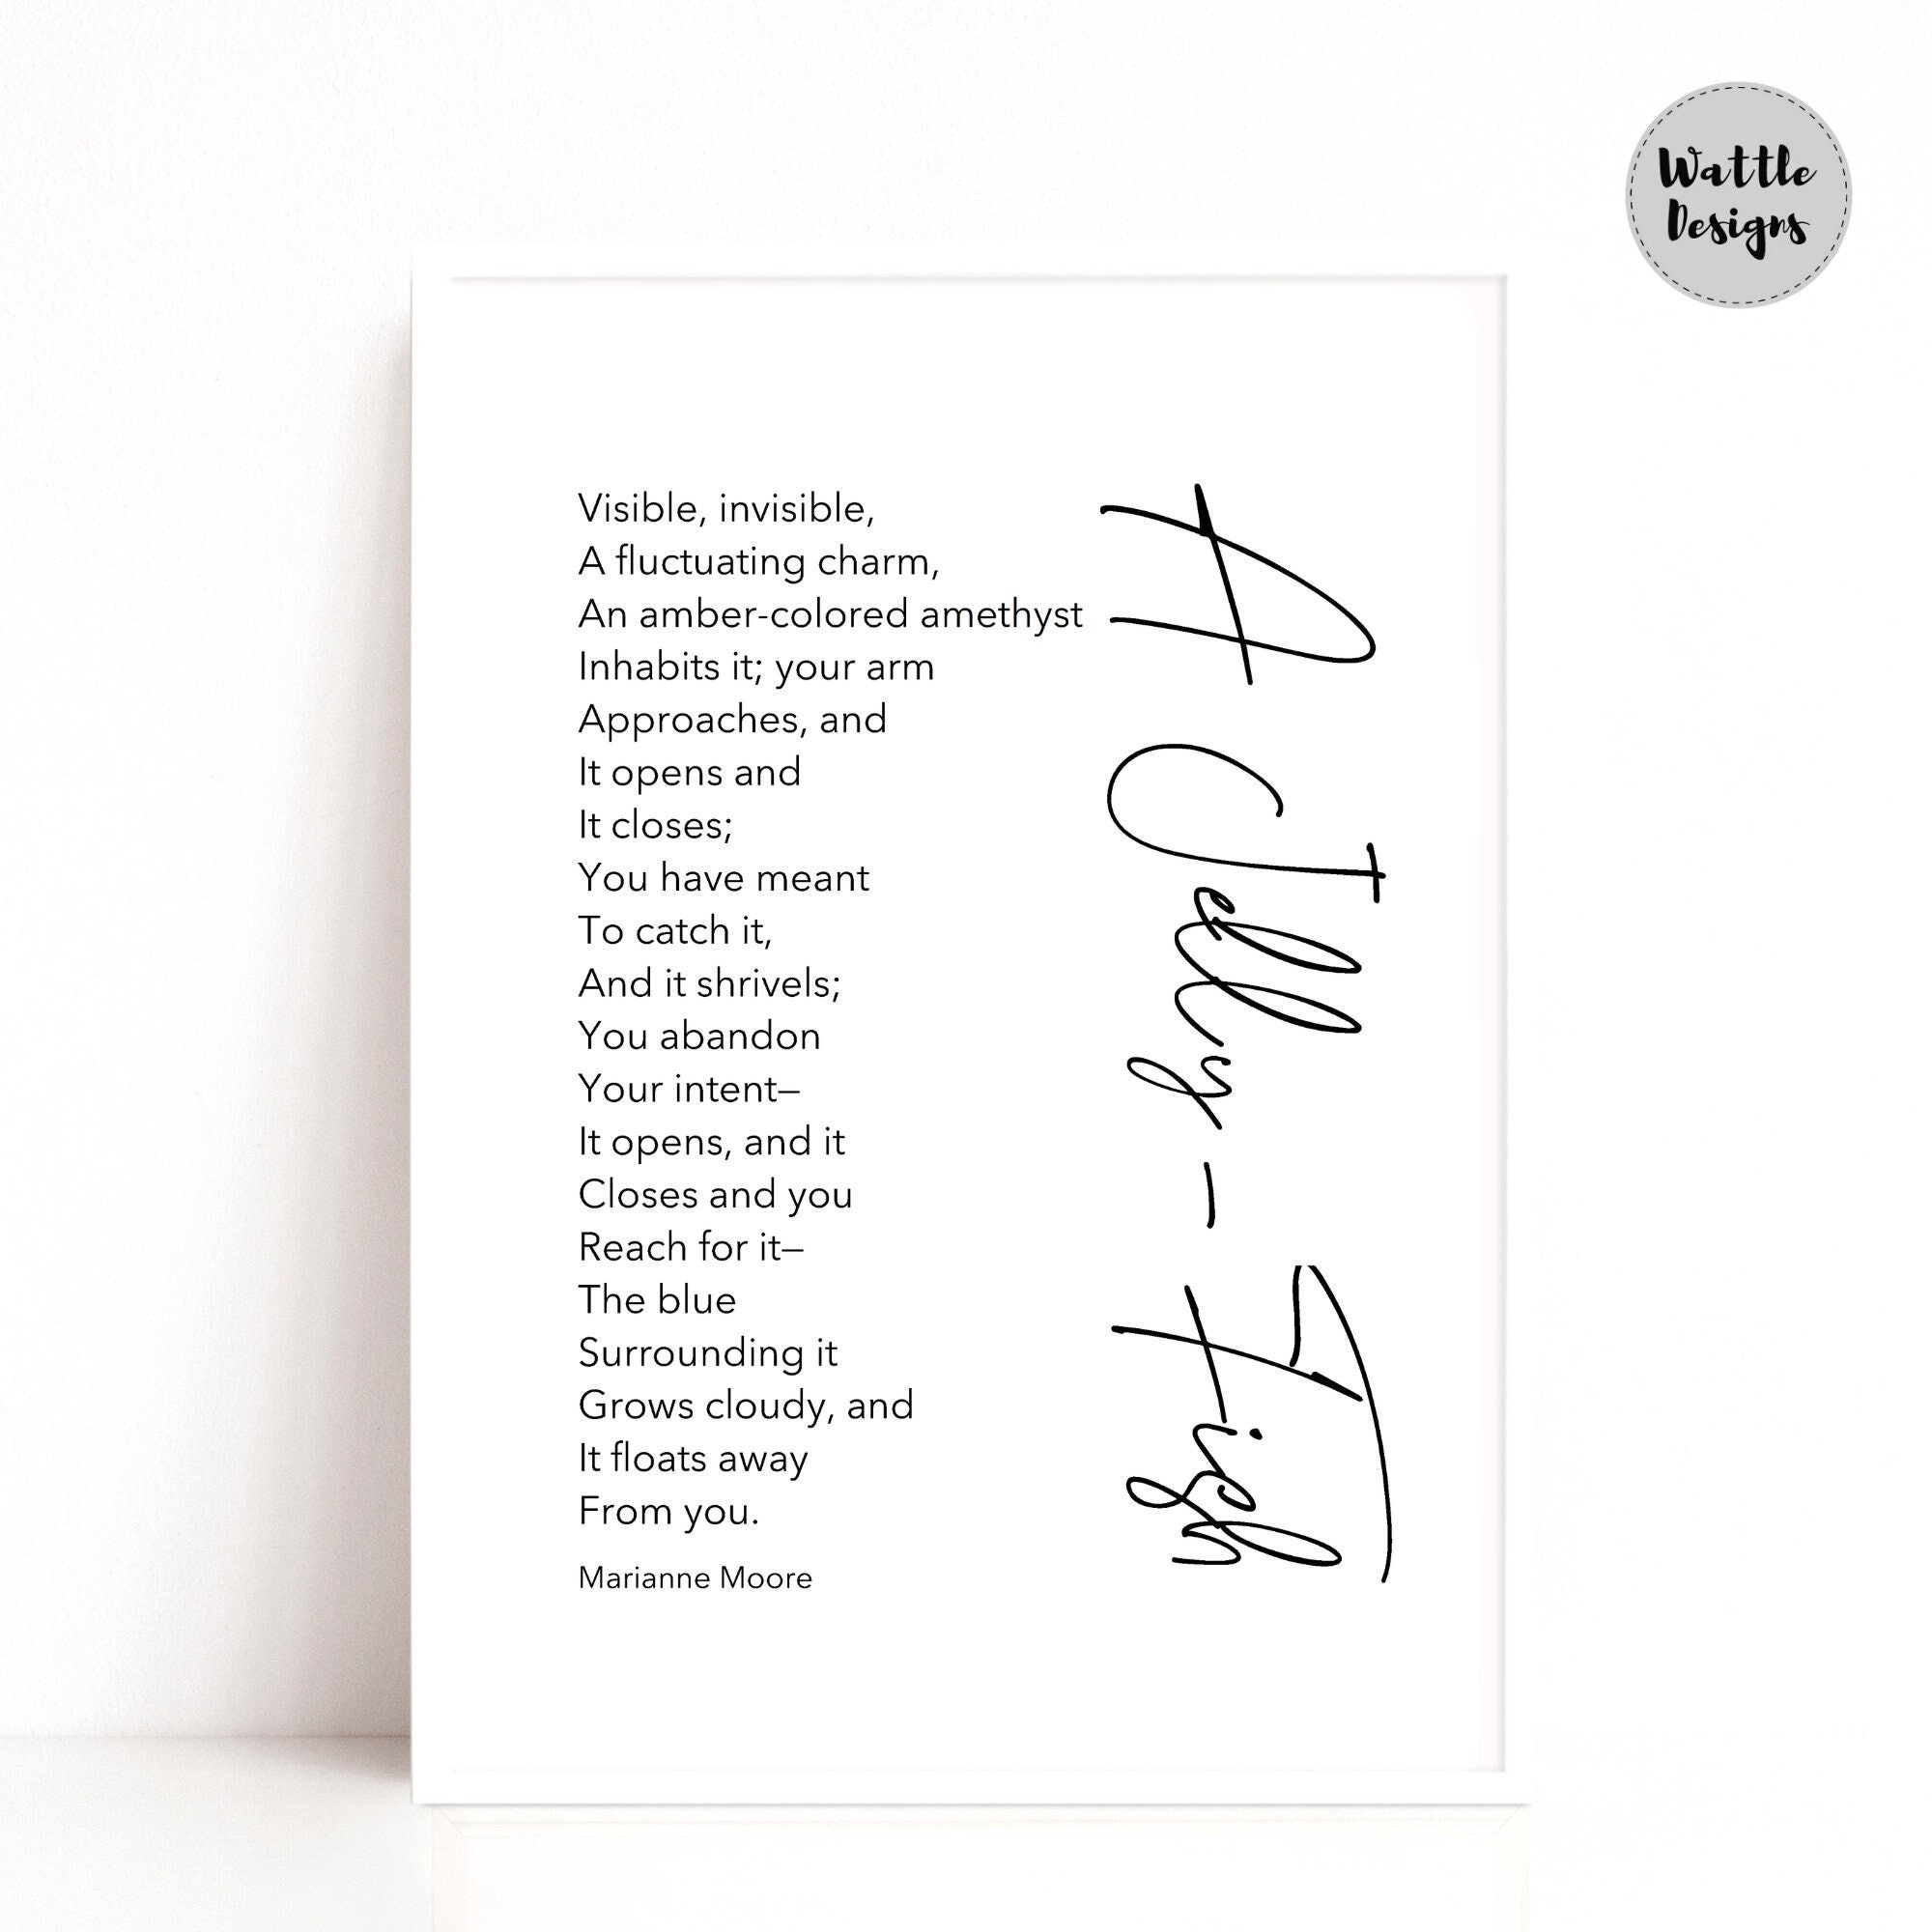 Wattle
Designs
Visible, invisible,
A fluctuating charm,
An amber-colored amethyst
Inhabits it; your arm
Approaches, and
It opens and
It closes;
You have meant
To catch it,
And it shrivels;
You abandon
Your intent—
It opens, and it
Closes and you
Reach for it—
The blue
Surrounding it
Grows cloudy, and
It floats away
From you.
Marianne Moore
A Jelly-Fish